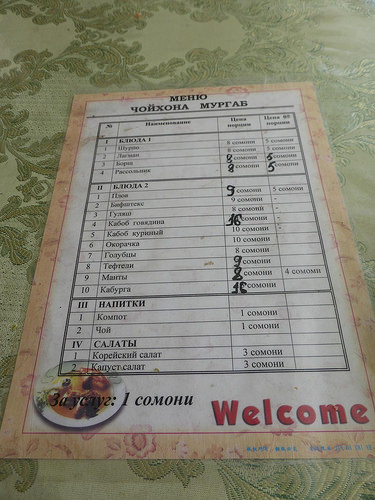 МЕНЮ
ЧОЙХОНА МУРГАБ
№ Наименование Цена порции Цена 05 порции
I БЛЮДА 1
1 Шурпо 8 сомони 5 сомони
2 Лагман 8 сомони 5 сомони
3 Борщ 8 сомони 5 сомони
4 Рассольник 8 сомони 5 сомони
II БЛЮДА 2
1 Плов 9 сомони 5 сомони
2 Бифштекс 9 сомони
3 Гуляш 8 сомони
4 Кабоб говядина сомони
5 Кабоб куриный 10 сомони
6 Окорачка 10 сомони
7 Голубцы 8 сомони
8 Гефтели 9 сомони
9 Манты 8 сомони 4 сомони
10 Кабурга сомони
III НАПИТКИ
1 Компот 1 сомони
2 Чой 1 сомони
IV САЛАТЫ
1 Корейский салат 3 сомони
2 Капуст.салат 3 сомони
За услуг: 1 сомони
Welcome